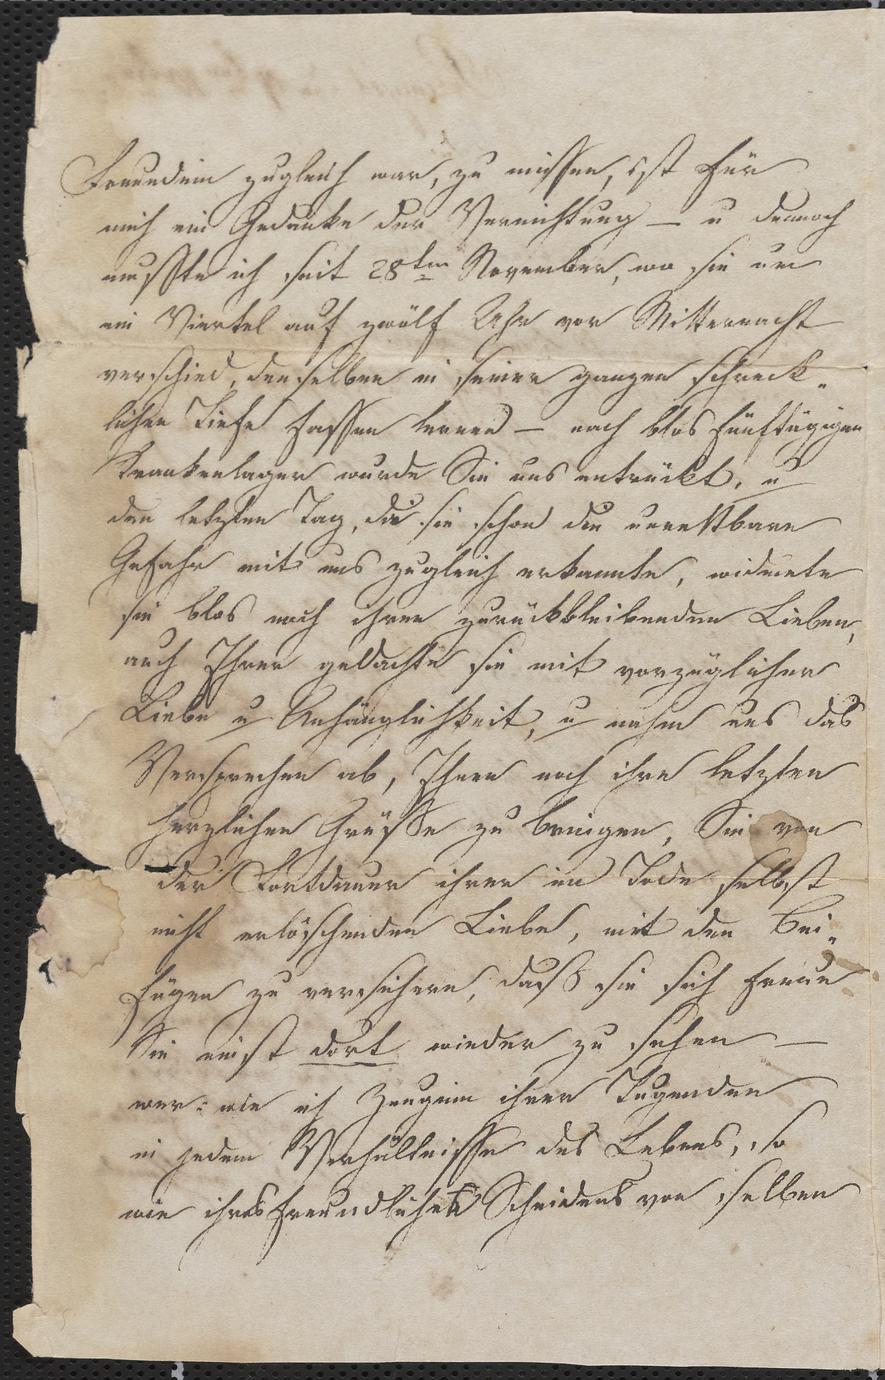 Freundin zugleich war, zu missen, ist für
mich ein Gedanke der Vernichtung – u dennoch
mußte ich seit 28ten November, wo sie um
ein Viertel auf zwölf Uhr vor Mitternacht
verschied, denselben in seiner ganzen schreck-
lichen Tiefe fassen lernen – nach blos fünftägigen
Krankenlager wurde Sie uns entrückt, u
den letzten Tag, da sie schon die unrettbare
Gefahr mit uns zugleich erkannte, widmete
sie blos noch ihren zurückbleibenden Lieben,
auch Ihrer gedachte sie mit vorzüglicher
Liebe u Anhänglichkeit, u nahm uns das
Versprechen ab, Ihnen noch ihre letzten
herzlichen Grüsse zu bringen, Sie von
der Fortdauer ihrer im Tode selbst
nicht erlöschenden Liebe, mit den Bei-
fügen zu versichern, daß sie sich freue
Sie einst dort wieder zu sehen –
wer: wie ich Zeugin ihrer Tugenden
in jedem Verhältnisse des Lebens, so
wie ihres freundlichen Scheidens von selben